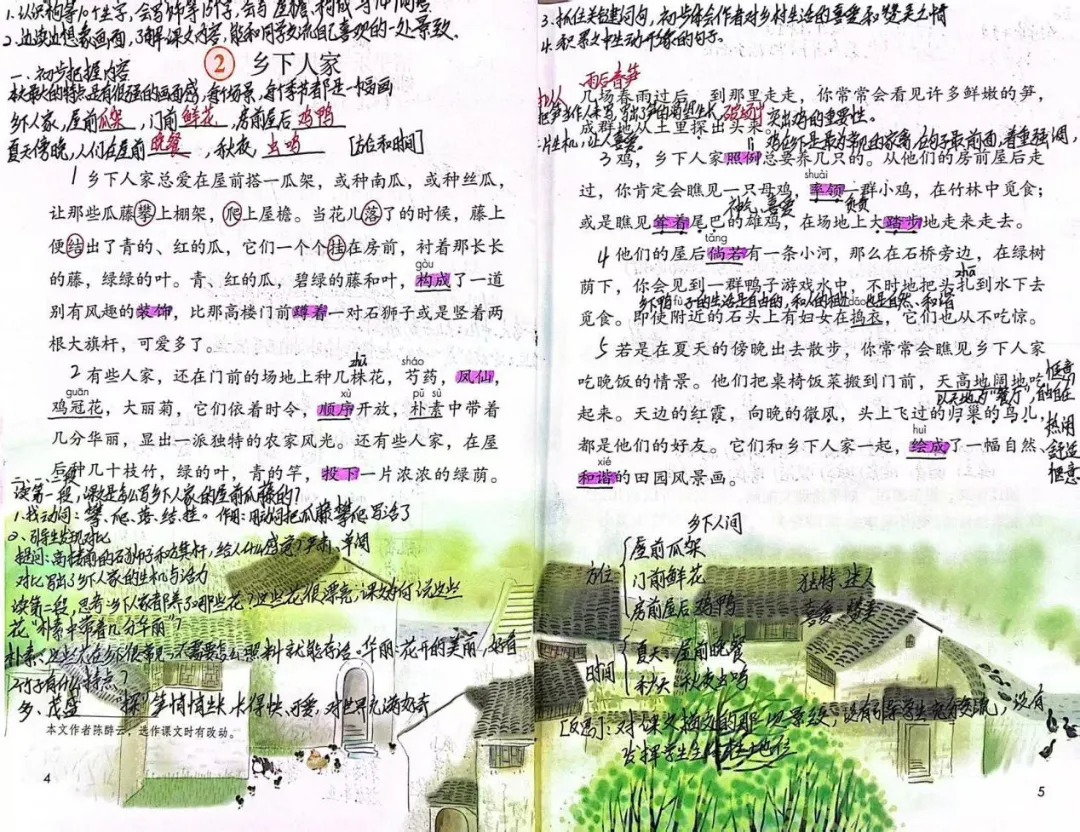 1.认识构等10个生字,会写
2.边读边想象画面,了解课文内容,能和同学交流自己喜欢的一处景致.
② 乡下人家
一、初步把握内容
本文最大的特点是有很强的画面感,每个场景,每个季节都是一幅画
乡下人家,屋前瓜架,门前鲜花,房前屋后鸡鸭
夏天傍晚,人们在屋前晚餐,秋夜,虫鸣 [方位和时间]
1 乡下人家总爱在屋前搭一瓜架,或种南瓜,或种丝瓜,
让那些瓜藤攀上棚架,爬上屋檐。当花儿落了的时候,藤上
便结出了青的、红的瓜,它们一个个挂在房前,衬着那长长
的藤,绿绿的叶。青、红的瓜,碧绿的藤和叶,构成了一道
gòu
别有风趣的装饰,比那高楼门前蹲着一对石狮子或是竖着两
根大旗杆,可爱多了。
zhū sháo
2 有些人家,还在门前的场地上种几株花,芍药,凤仙,
guān xù pǔ sù
鸡冠花,大丽菊,它们依着时令,顺序开放,朴素中带着
几分华丽,显出一派独特的农家风光。还有些人家,在屋
后种几十枝竹,绿的叶,青的竿,投下一片浓浓的绿荫。
读第一段,课文是怎么写乡下人家的屋前瓜藤的?
1.找动词:攀、爬、落、结、挂。作用:用动词把瓜藤攀爬写活了
2、引导生发现对比
提问:高楼前的石狮子和大旗杆,给人什么感觉?严肃、单调
对比写出了乡下人家的生机与活力
读第二段,思考:乡下人家都养了哪些花?这些花很漂亮,课文如何说这些
花"朴素中带着几分华丽"?
朴素:这些花在乡下很常见,不需要怎么照料就能存活。华丽:花开的美丽,好看
2.竹子有什么特点?
多、茂盛 "探"笋悄悄生长,长得快、可爱,对世界充满好奇
本文作者陈醉云,选作课文时有改动。
4
3.抓住关键词句,初步体会作者对乡村生活的喜爱和赞美之情
4.积累文中生动形象的句子。
雨后春笋
几场春雨过后,到那里走走,你常常会看见许多鲜嫩的笋,
拟人
成群地从土里探出头来。
突出鸡的重要性。
3 鸡,乡下人家照例总要养几只的。从他们的房前屋后走
lì
shuài
过,你肯定会瞧见一只母鸡,率领一群小鸡,在竹林中觅食;
神气、喜爱
或是瞧见耸着尾巴的雄鸡,在场地上大踏步地走来走去。
tǎng
4 他们的屋后倘若有一条小河,那么在石桥旁边,在绿树
zhā
荫下,你会见到一群鸭子游戏水中,不时地把头扎到水下去
fù dǎo
觅食。即使附近的石头上有妇女在捣衣,它们也从不吃惊。
5 若是在夏天的傍晚出去散步,你常常会瞧见乡下人家
吃晚饭的情景。他们把桌椅饭菜搬到门前,天高地阔地吃
起来。天边的红霞,向晚的微风,头上飞过的归巢的鸟儿,
热闹
都是他们的好友。它们和乡下人家一起,绘成了一幅自然、
huì
舒适
xié
和谐的田园风景画。
惬意
乡下人间
方位
屋前瓜架
门前鲜花
房前屋后鸡鸭
独特、迷人
喜爱、赞美
时间
夏天:屋前晚餐
秋天:秋夜虫鸣
5